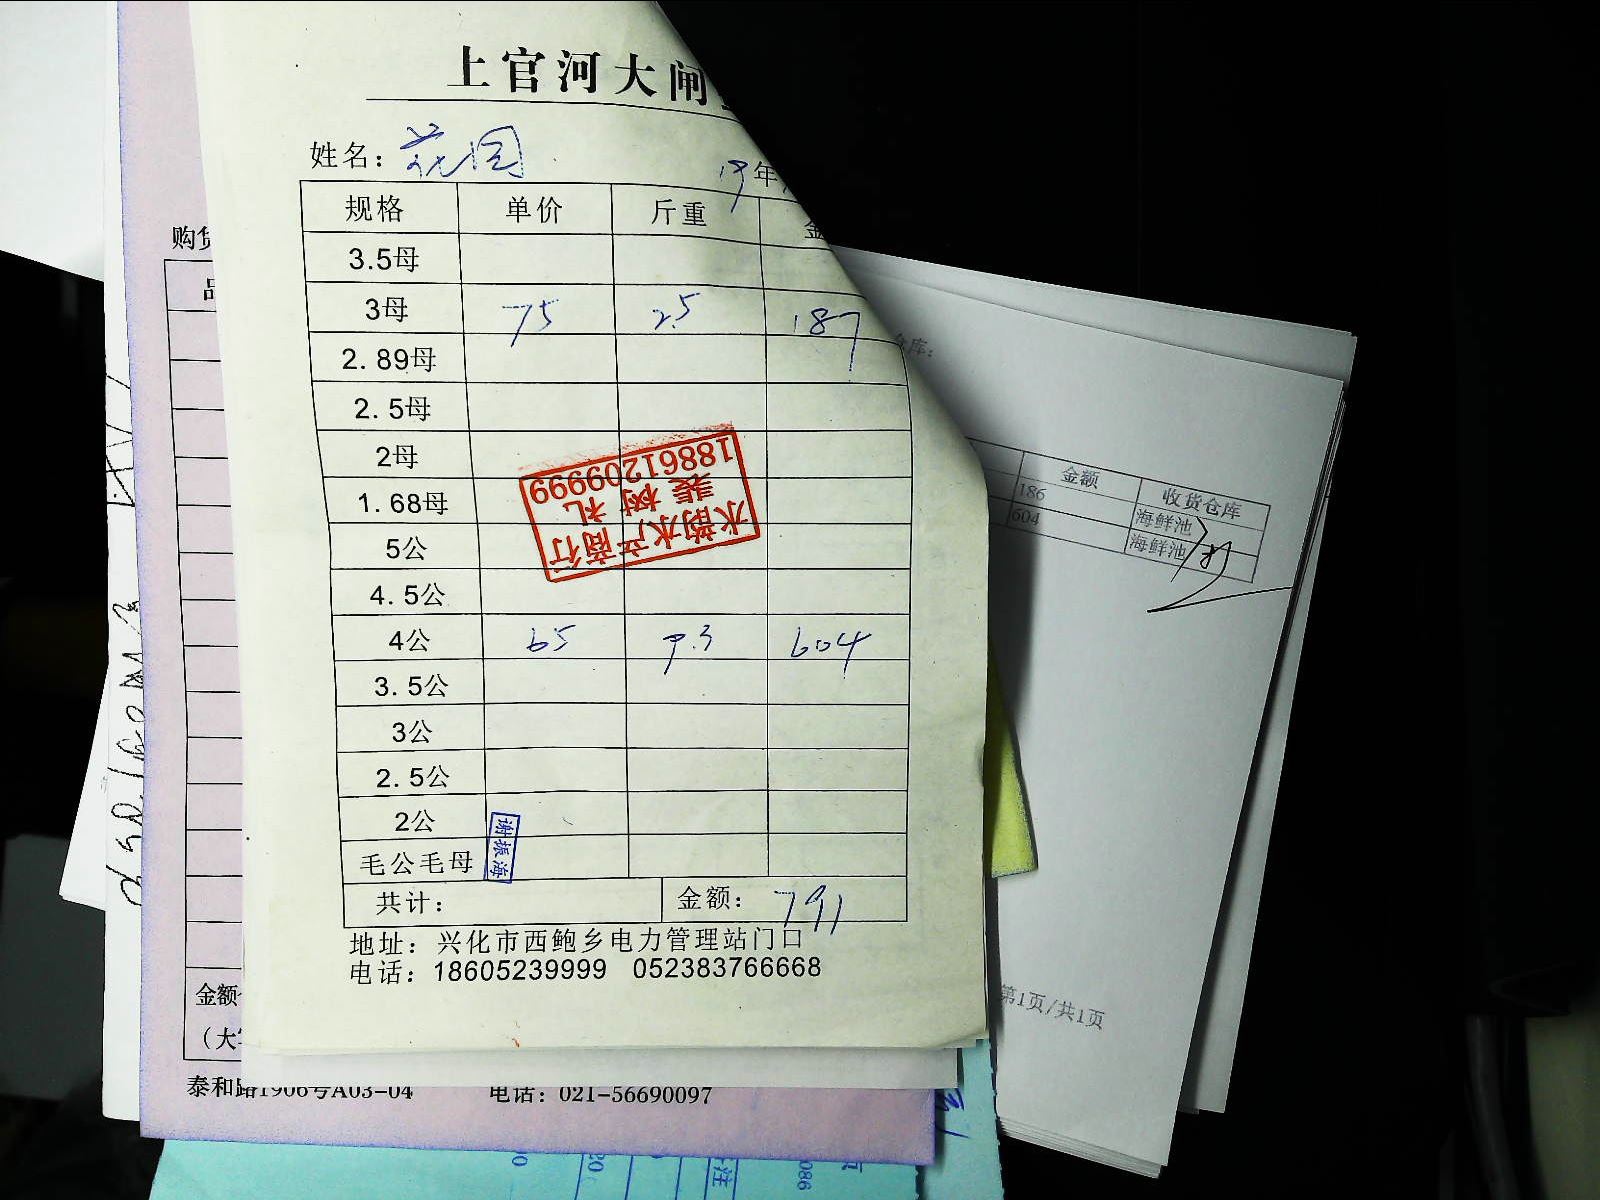 上官河大闸
姓名：花园
19年
规格 单价 斤重 金
3.5母
3母 75 2.5 187
2.89母
2.5母
2母
1.68母
5公
4.5公
4公 65 9.3 604
3.5公
3公
2.5公
2公
毛公毛母
共计： 金额： 791
地址：兴化市西鲍乡电力管理站门口
电话：18605239999 052383766668
水韵水产商行
裴树礼
18861209999
谢振海
购货
品
金额
（大
泰和路1906号A03-04 电话：021-56690097
仓库：
金额 收货仓库
186 海鲜池
604 海鲜池
第1页/共1页